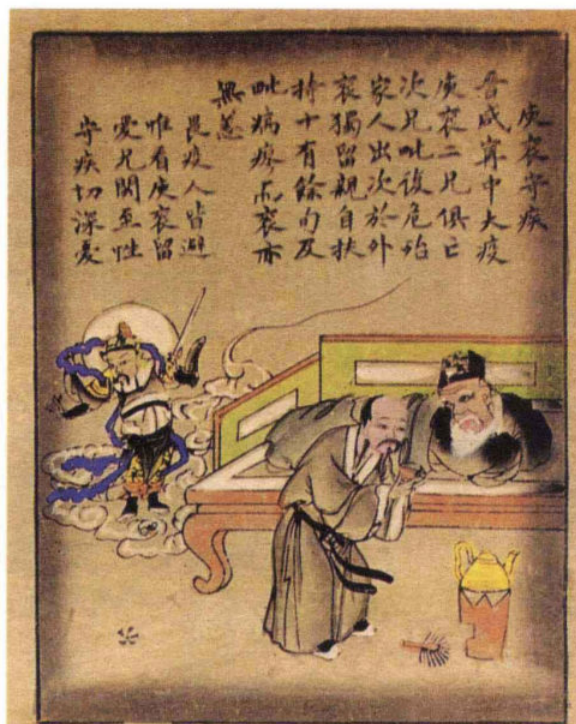 庾衮守疾
晉咸寧中大疫
庾衮二兄俱亡
次兄毗復危殆
家人出次於外
衮獨留親自扶
持十有餘旬及
毗病瘳而衮亦
無恙
畏疫人皆避
唯看庾衮留
愛兄關至性
守疾切深憂